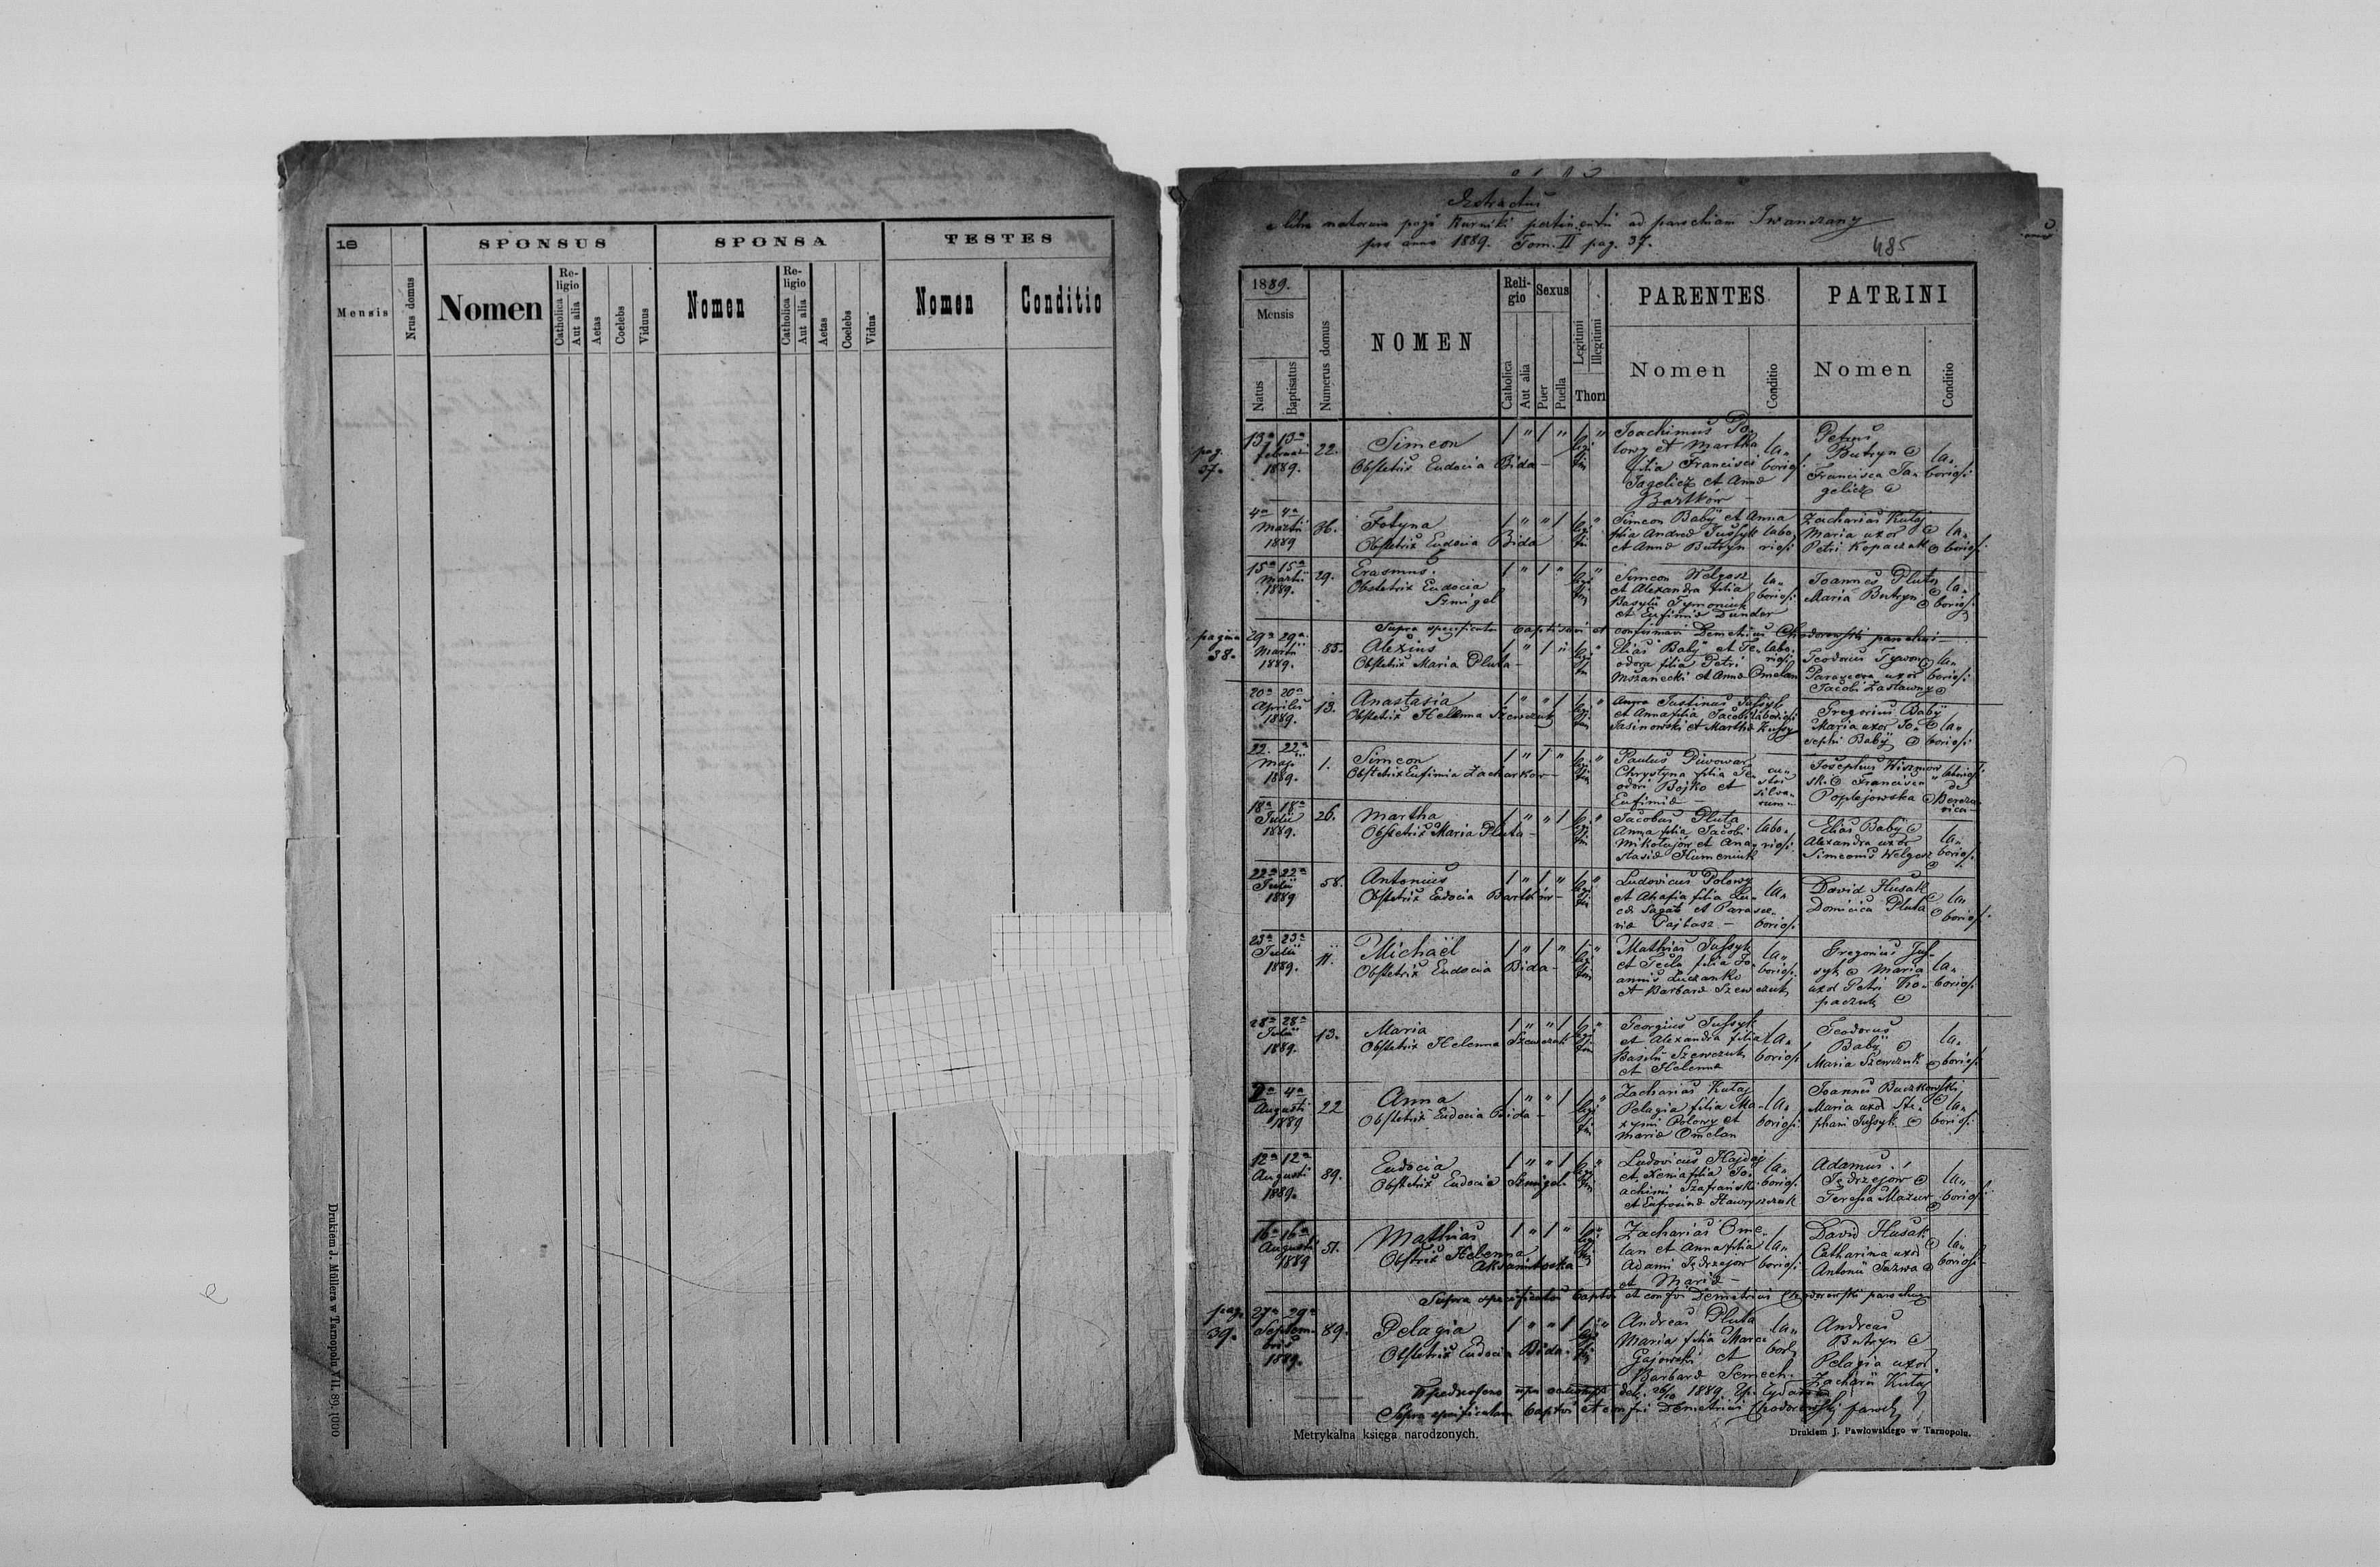 18
SPONSUS
SPONSA
TESTES
Mensis
Nrus domus
Nomen
Re-
ligio
Catholica
Aut alia
Aetas
Coelebs
Viduus
Nomen
Re-
ligio
Catholica
Aut alia
Aetas
Coelebs
Vidua
Nomen
Conditio
Drukiem J. Müllera w Tarnopolu VII. 89. 1000
Extractus
natorum pagi Kurniki ad parochiam Iwanczany
pro anno 1889. Tom. II pag. 37.
485
1889.
Mensis
Natus
Baptisatus
Numerus domus
NOMEN
Reli-
gio
Catholica
Aut alia
Sexus
Puer
Puella
Legitimi
Illegitimi
Thori
PARENTES
Nomen
Conditio
PATRINI
Nomen
Conditio
pag.
37.
13a 13a
Februarii
1889.
22.
Simeon
Obstetrix Eudocia Bida
Joachimus Po-
lowy et Martha
filia Francisci
Jagelicz et Annae
Bartków
la-
boriosi
Petrus
Butryn
Francisca Ja-
gelicz
la-
boriosi
4a 4a
Martii
1889
36.
Fotyna
Obstetrix Eudocia Bida
Simeon Babÿ et Anna
filia Andreae Jussyk
et Annae Butryn
labo-
riosi
Zacharias Kutaj
Maria uxor
Petri Kopaczuk
la-
boriosi
15a 15a
Martii
1889.
29.
Erasmus.
Obstetrix Eudocia
Szmigel
Simeon Welgosz
et Alexandra filia
Basylii Tymoniuk
et Eufimiae Dundar
la-
boriosi
Joannes Pluta
Maria Butryn
la-
boriosi
Supra specificatos baptisavi et confirmavi Demetrius Chodorowski parochus
pagina
38.
29a 29a
Martii
1889.
85.
Alexius
Obstetrix Maria Pluta
Elias Babÿ et Te-
odora filia Petri
Mszanecki et Annae Omelan
labo-
riosi
Teodorus Tywon
Parasceva uxor
Jacobi Zastawny
la-
boriosi
20a 20a
Aprilis
1889.
13.
Anastasia
Obstetrix Helenna Szewczuk
Justinus Jussyk
et Anna filia Jacobi
Jasinowski et Marthae Kussy
laboriosi
Gregorius Babÿ
Maria uxor Jo-
sephi Babÿ
la-
boriosi
22. 22a
Maji
1889.
1.
Simeon
Obstetrix Eufimia Zacharkow
Paulus Piwowar
Chrystyna filia Te-
odori Bojko et
Eufimiae
cu-
stos
silva-
rum
Josephus Wiszniow-
ski Francisca
Poplejowska
laboriosi
de
18a 18a
Julii
1889.
26.
Martha
Obstetrix Maria Pluta
Jacobus Pluta
Anna filia Jacobi
Mikołajów et Ana-
stasiae Humeniuk
labo-
riosi
Elias Babÿ
Alexandra uxor
Simeonis Welgosz
la-
boriosi
22a 22a
Julii
1889
58.
Antonius
Obstetrix Eudocia Bartków
Ludovicus Polowy
et Ahafia filia Lu-
cae Sagat et Parasce-
viae Pajtasz
la-
boriosi
David Husak
Dominica Pluta
la-
boriosi
23a 23a
Julii
1889.
11.
Michaël
Obstetrix Eudocia Bida
Mathias Jussyk
et Tecla filia Jo-
annis Luczanko
et Barbarae Szewczuk
la-
boriosi
Gregorius Jus-
syk Maria
uxor Petri Ko-
paczuk
la-
boriosi
28a 28a
Julii
1889.
13.
Maria
Obstetrix Helenna Szewczuk
Georgius Jussyk
et Alexandra filia
Basilii Szewczuk
et Helenna
la-
boriosi
Teodorus
Babÿ
Maria Szewczuk
la-
boriosi
2a 4a
Augusti
1889
22
Anna
Obstetrix Eudocia Bida
Zacharias Kutaj
Pelagia filia Ma-
xymi Polowy et
Mariae Omelan
la-
boriosi
Joannes Buczkowski
Maria uxor Ste-
phani Jussyk
la-
boriosi
12a 12a
Augusti
1889.
89.
Eudocia
Obstetrix Eudocia Szmigel
Ludovicus Hajdaj
et Xenia filia Jo-
achimi Szafrański
et Eufrosinae Hawryszczuk
la-
boriosi
Adamus
Jędrzejow
Teresia Mazur
la-
boriosi
16a 16a
Augusti
1889
51.
Mathias
Obstetrix Helenna
Aksamitoska
Zacharias Ome-
lan et Anna filia
Adami Jędrzejow
et Mariae
la-
boriosi
David Husak
Catharina uxor
Antonii Jazwa
la-
boriosi
Supra specificatos et Demetrius Chodorowski parochus
pag.
39.
27a 29a
Septem-
bris
1889.
89.
Pelagia
Obstetrix Eudocia Bida
Andreas Pluta
Maria filia Marci
Gajowski et
Barbarae Semech.
Andreas
Butryn
Pelagia uxor
Zachariï Kutaj
1889.
Supra specificatam et Demetrius Chodorowski
Metrykalna księga narodzonych.
Drukiem J. Pawłowskiego w Tarnopolu.